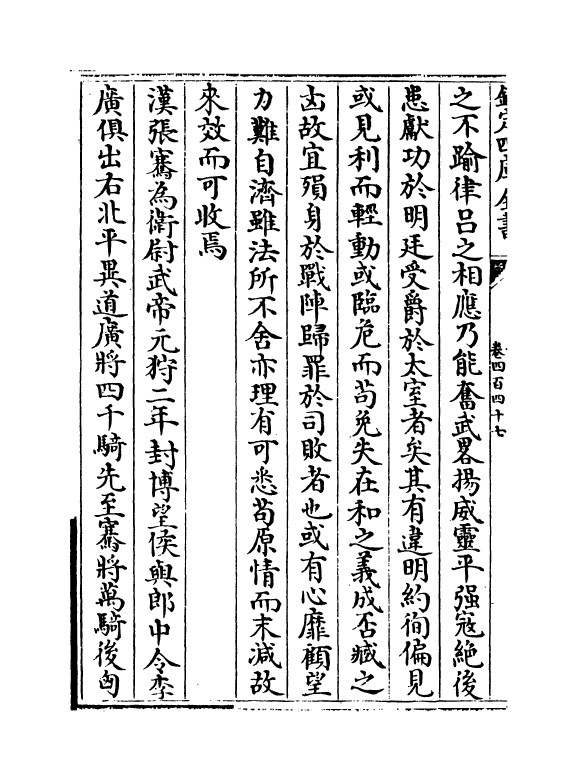 欽定四庫全書
卷四百四十七
之不踰律吕之相應乃能奮武畧揚威靈平强冦絶後
患獻功於明廷受爵於太室者矣其有違明約徇偏見
或見利而輕動或臨危而苟免失在和之義成否臧之
凶故宜殞身於戰陣歸罪於司敗者也或有心靡顧望
力難自濟雖法所不舍亦理有可悉苟原情而末減故
來效而可收焉
漢張騫為衛尉武帝元狩二年封博望侯與郎中令李
廣俱出右北平異道廣將四千騎先至騫將萬騎後匈